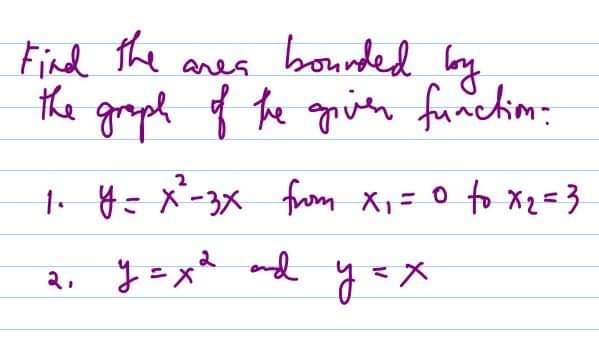 Find the area bounded by
the graph of the given function:
1. y = x² - 3x from x₁ = 0 to x₂ = 3
2. y = x² and y = x